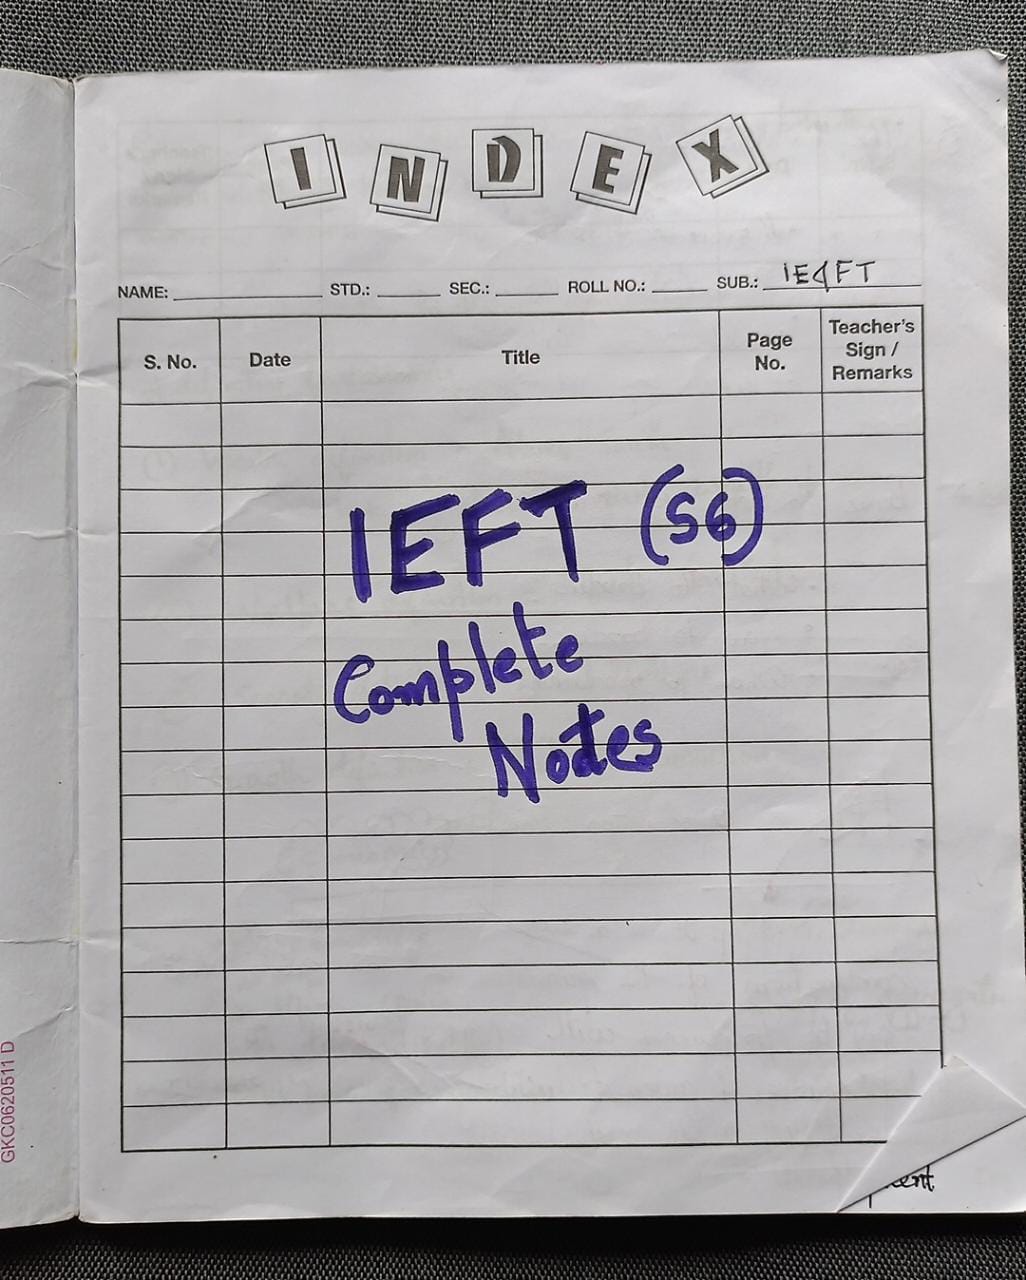 INDEX
NAME: STD.: SEC.: ROLL NO.: SUB.: IE&FT
S. No. Date Title Page No. Teacher's Sign / Remarks
IEFT (S6)
Complete
Notes
GKC0620511 D